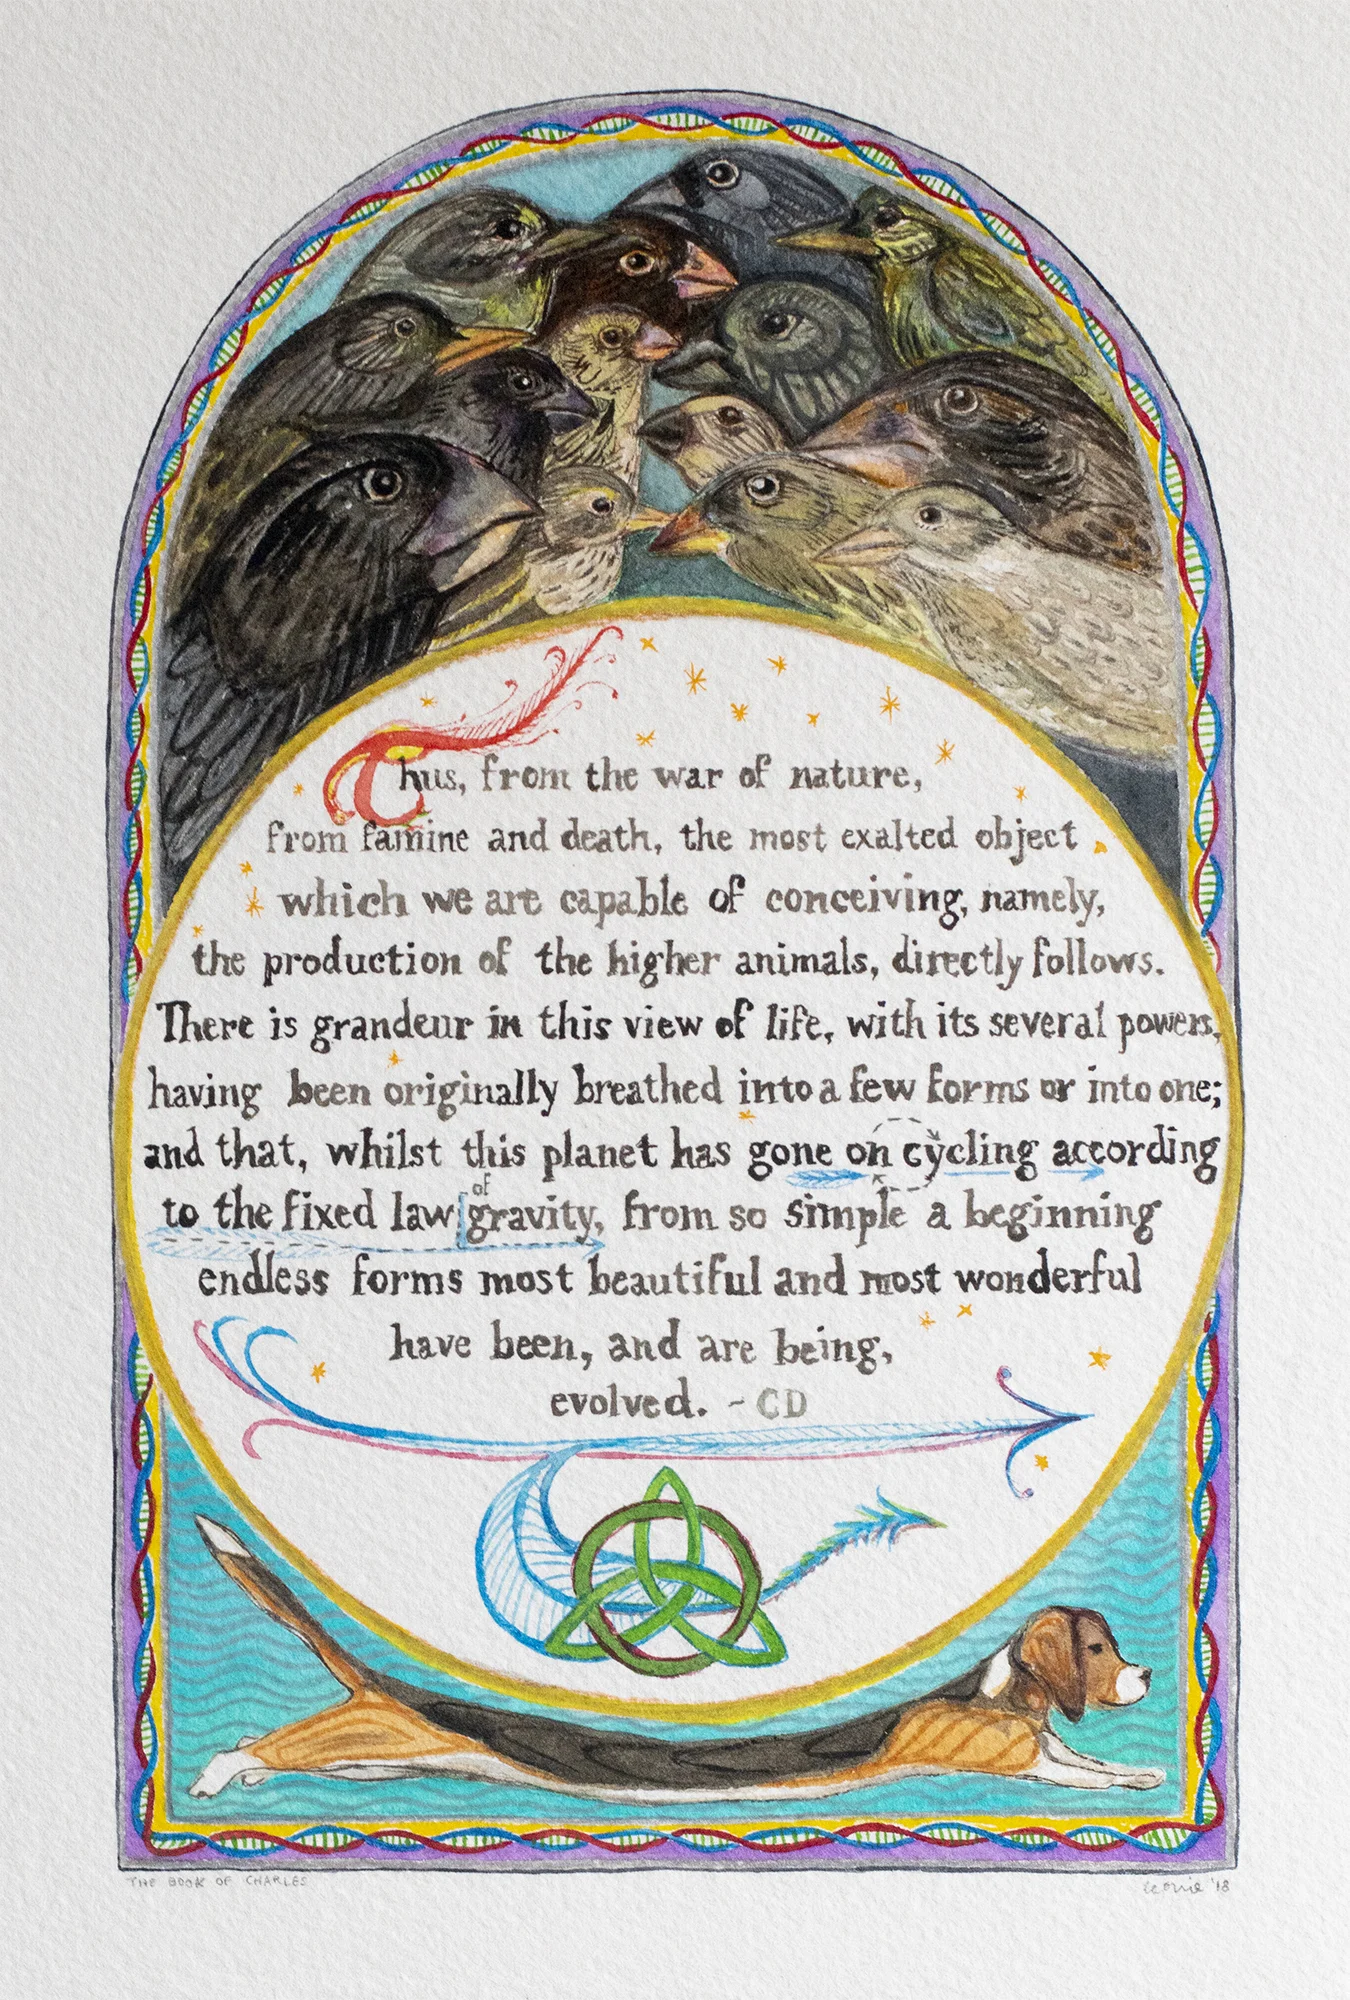 Thus, from the war of nature,
from famine and death, the most exalted object
which we are capable of conceiving, namely,
the production of the higher animals, directly follows.
There is grandeur in this view of life, with its several powers,
having been originally breathed into a few forms or into one;
and that, whilst this planet has gone on cycling according
to the fixed law of gravity, from so simple a beginning
endless forms most beautiful and most wonderful
have been, and are being,
evolved. - CD
THE BOOK OF CHARLES
leonie '18